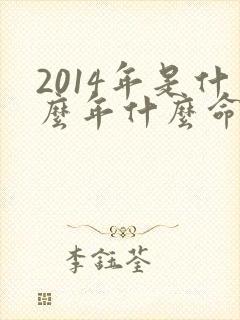 2014年是什
麼年什麼命
李鈺荃